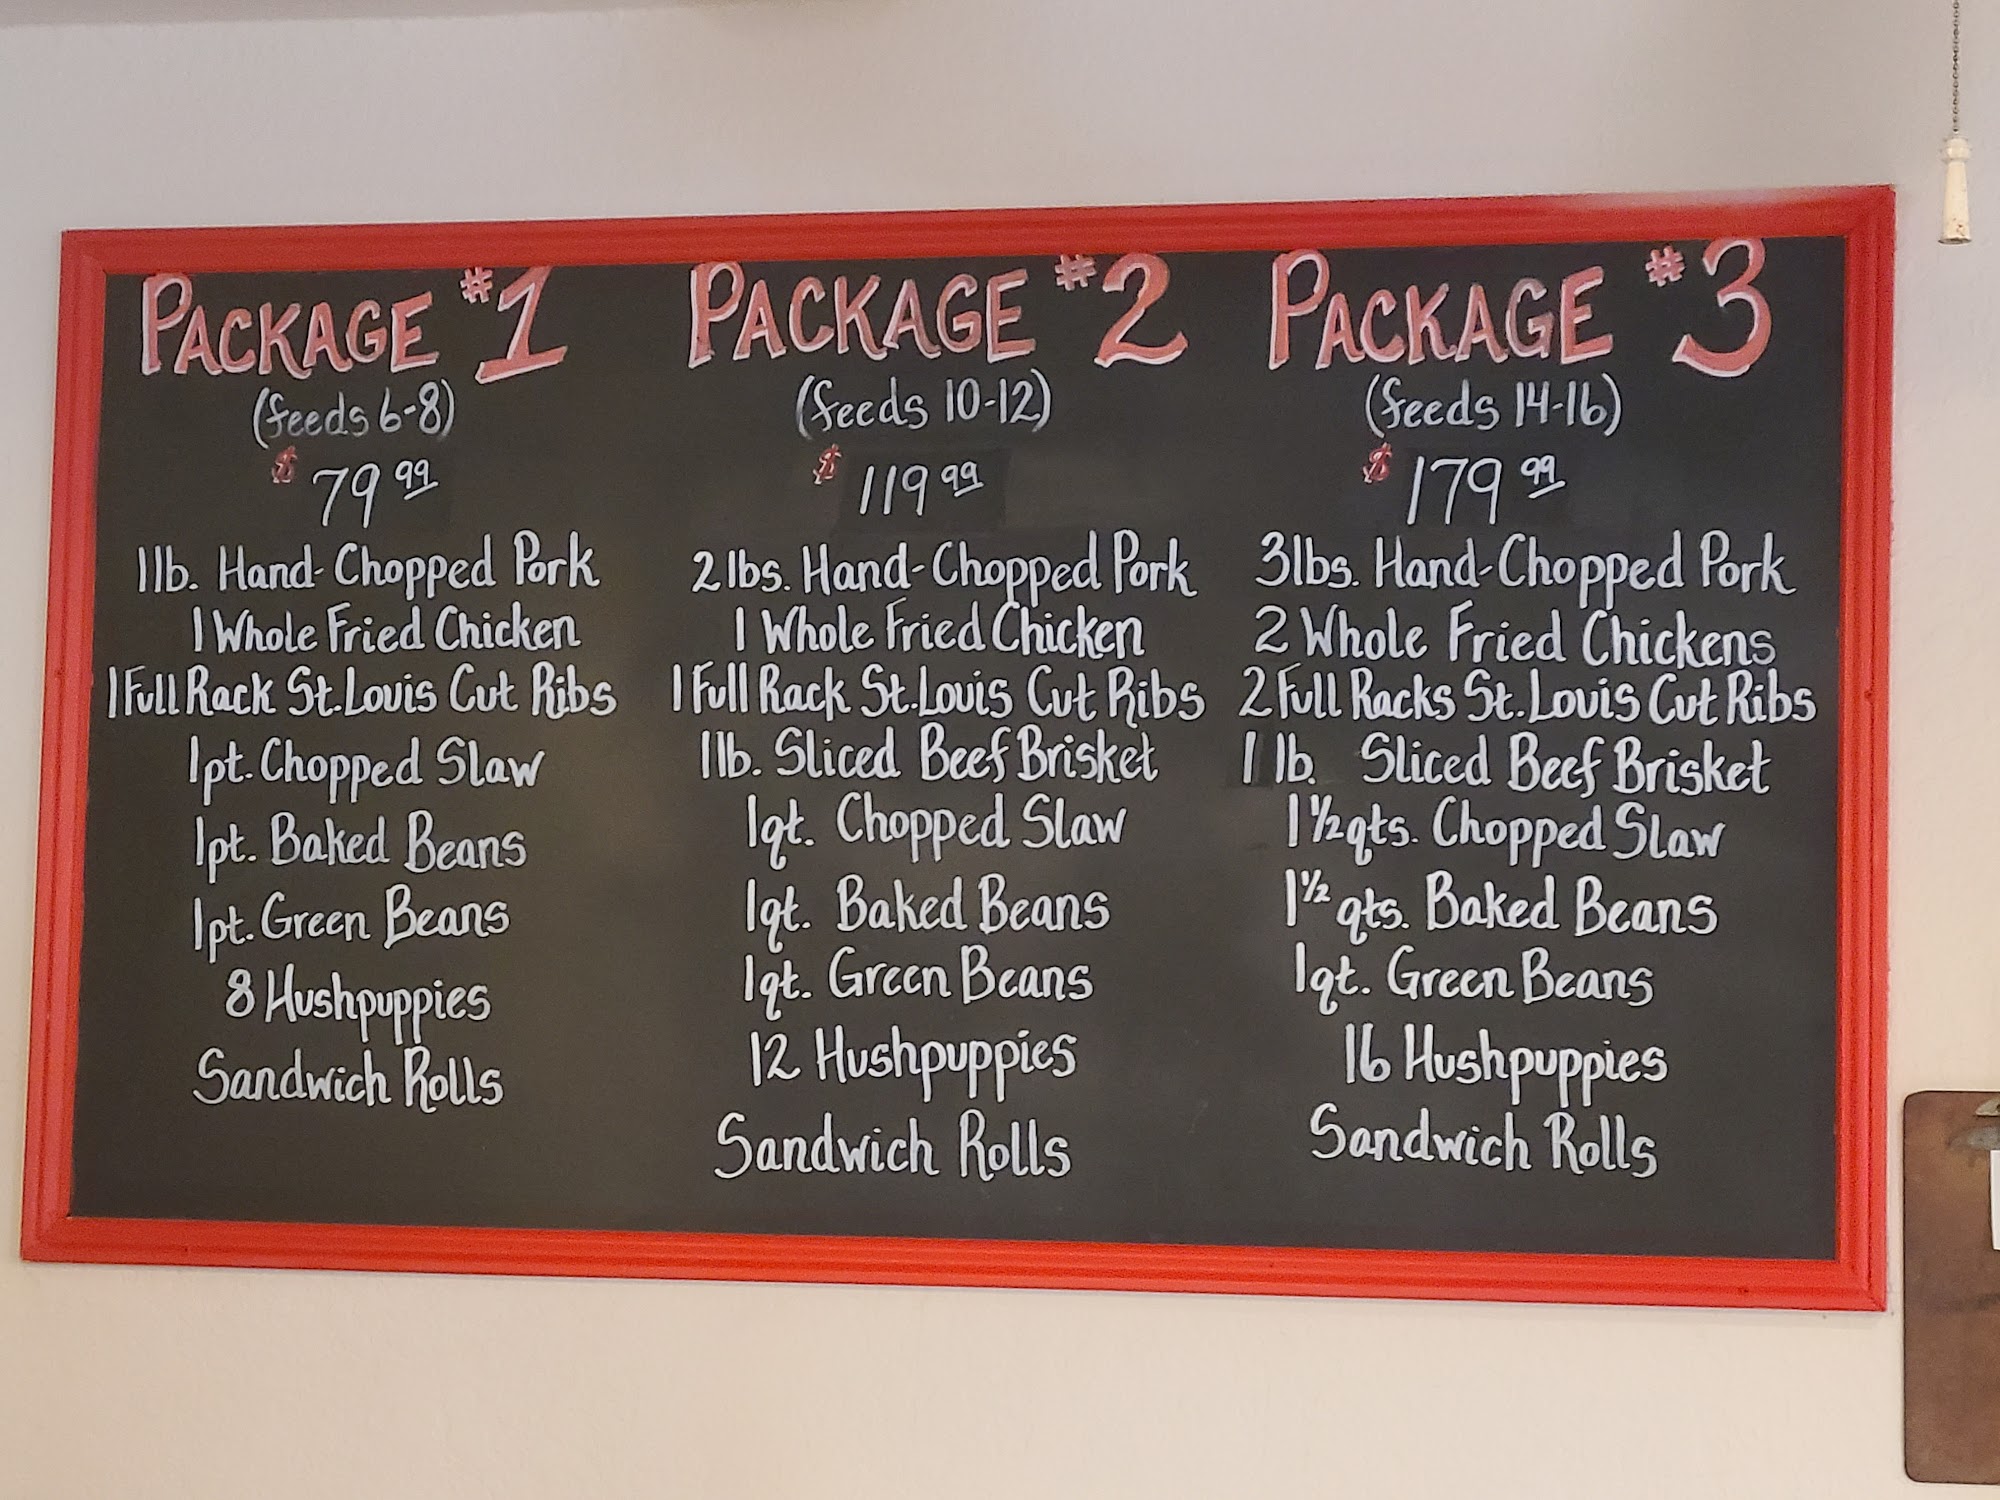 PACKAGE #1
(feeds 6-8)
$79.99
1lb. Hand-Chopped Pork
1 Whole Fried Chicken
1 Full Rack St. Louis Cut Ribs
1pt. Chopped Slaw
1pt. Baked Beans
1pt. Green Beans
8 Hushpuppies
Sandwich Rolls
PACKAGE #2
(feeds 10-12)
$119.99
2 lbs. Hand-Chopped Pork
1 Whole Fried Chicken
1 Full Rack St. Louis Cut Ribs
1lb. Sliced Beef Brisket
1qt. Chopped Slaw
1qt. Baked Beans
1qt. Green Beans
12 Hushpuppies
Sandwich Rolls
PACKAGE #3
(feeds 14-16)
$179.99
3lbs. Hand-Chopped Pork
2 Whole Fried Chickens
2 Full Racks St. Louis Cut Ribs
1 lb. Sliced Beef Brisket
1 1/2 qts. Chopped Slaw
1 1/2 qts. Baked Beans
1qt. Green Beans
16 Hushpuppies
Sandwich Rolls